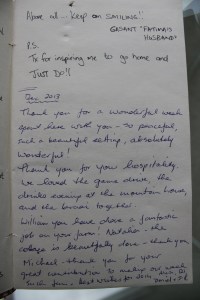 Above all... keep on SMILING!!
GASANT "FATIMA'S
HUSBAND"
P.S.
Tx for inspiring me to go home and
JUST DO!!
Dec 2013
Thank you for a wonderful week
spent here with you - so peaceful,
such a beautiful setting, absolutely
wonderful!
Thank you for your hospitality.
We loved the game drive, the
drinks evening at the mountain house,
and the braai together.
William you have done a fantastic
job on your farm! Natalie - the
cottage is beautifully done - thank you
Michael - thank you for your
great contribution to making our week
such fun - best wishes for